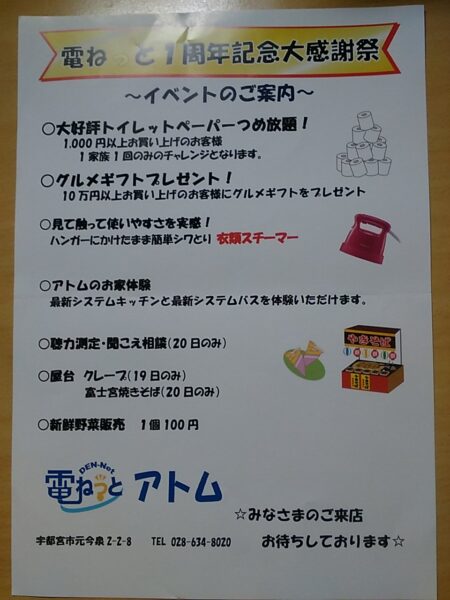 電ねっと1周年記念大感謝祭
～イベントのご案内～
○大好評トイレットペーパーつめ放題！
1,000円以上お買い上げのお客様
1家族1回のみのチャレンジとなります。
○グルメギフトプレゼント！
10万円以上お買い上げのお客様にグルメギフトをプレゼント
○見て触って使いやすさを実感！
ハンガーにかけたまま簡単シワとり 衣類スチーマー
○アトムのお家体験
最新システムキッチンと最新システムバスを体験いただけます。
やきそば
○聴力測定・聞こえ相談(20日のみ)
○屋台 クレープ(19日のみ)
富士宮焼きそば(20日のみ)
○新鮮野菜販売 1個100円
DEN-Net
電ねっと アトム
☆みなさまのご来店
お待ちしております☆
宇都宮市元今泉2-2-8 TEL 028-634-8020